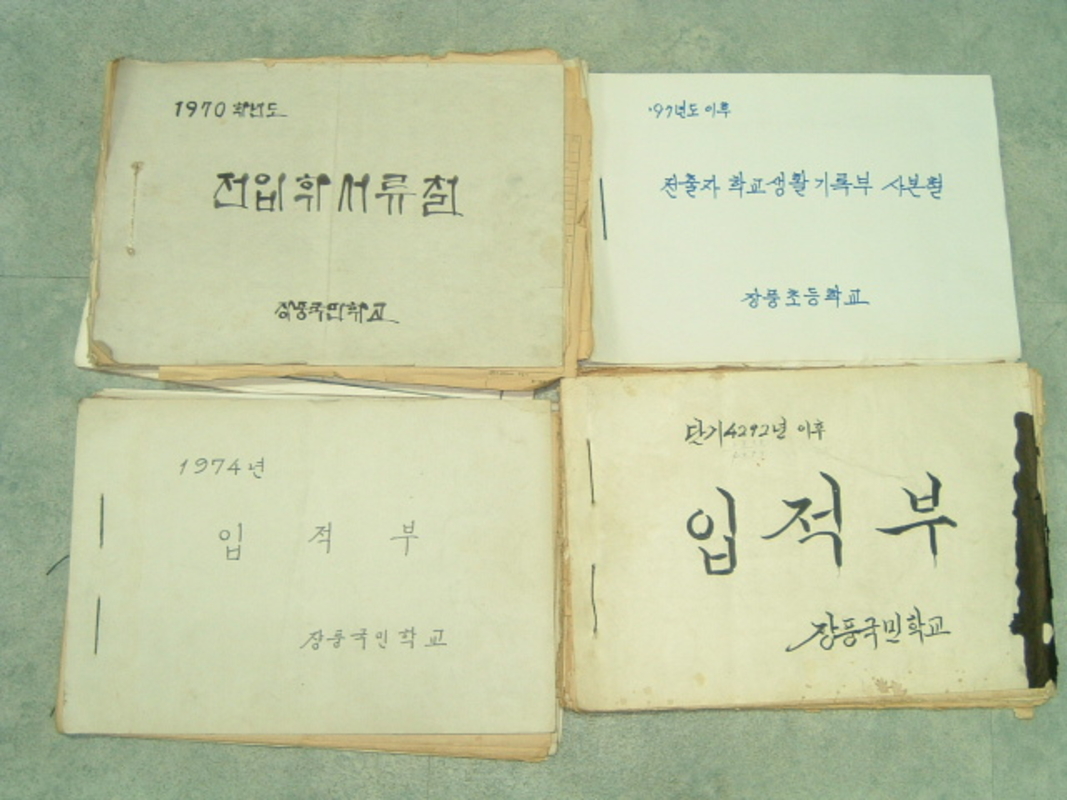 1970 학년도
전입학서류철
장풍국민학교
'97년도 이후
전출자 학교생활기록부 사본철
장풍초등학교
1974년
입 적 부
장풍국민학교
단기4292년 이후
입 적 부
장풍국민학교